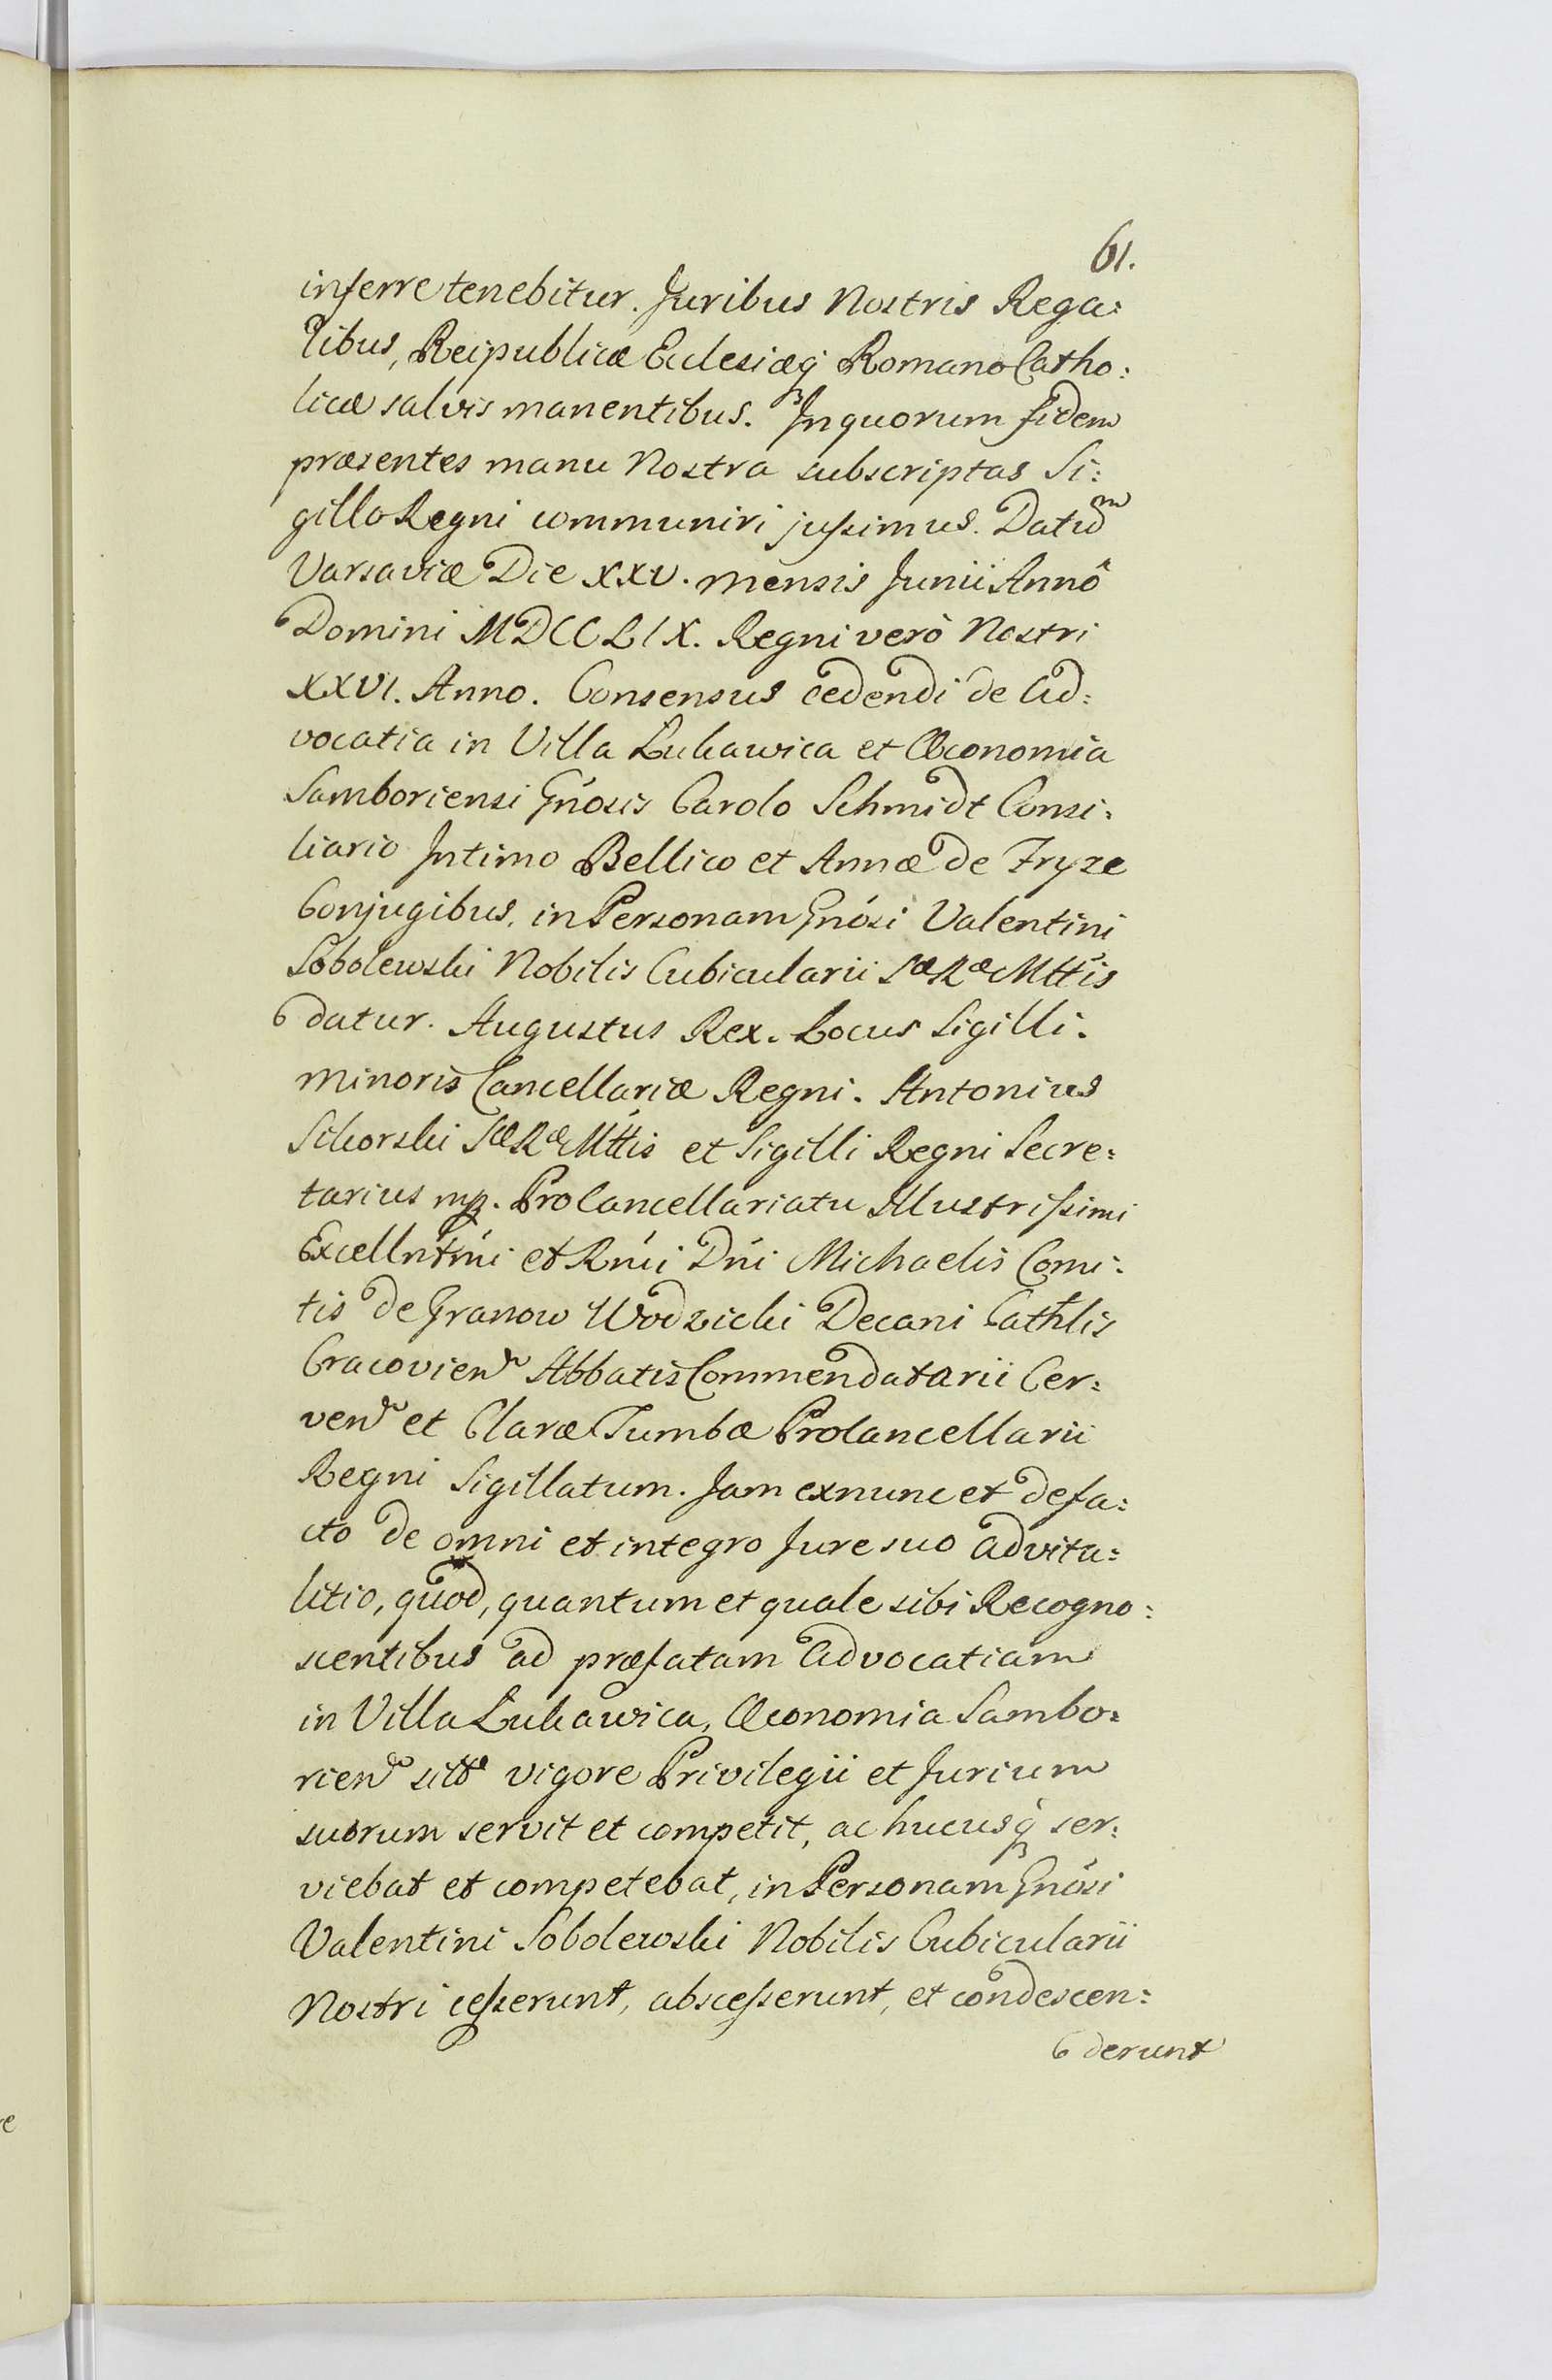 61.
inferre tenebitur. Juribus Nostris Rega:
libus, Reipublicæ Eclesiæq́ Romano Catho:
licæ salvis manentibus. In quorum fidem
præsentes manu Nostra subscriptas Si:
gillo Regni communiri jussimus. Datum
Varsaviæ Die XXV. mensis Junii Annô
Domini MDCCLIX. Regni verò Nostri
XXVI. Anno. Consensus cedendi de Ad:
vocatia in Villa Lukawica et Œconomia
Samboriensi Gńosis Carolo Schmidt Consi:
liario Intimo Bellico et Annæ de Fryze
Conjugibus, in Personam Gnósi Valentini
Sobolewski Nobilis Cubicularii Sæ Ræ Mttis
datur. Augustus Rex. Locus Sigilli.
minoris Cancellariæ Regni. Antonius
Sikorski Sæ Ræ Mttis et Sigilli Regni Secre:
tarius mp. Procancellariatu Illustrissimi
Excellntmi et Rmi Dńi Michaelis Comi:
tis de Granow Wodzicki Decani Cathlis
Cracovien Abbatis Commendatarii Cer:
ven et Claræ Tumbæ Procancellarii
Regni Sigillatum. Jam exnunc et defa:
cto de omni et integro Jure suo advita:
litio, quod, quantum et quale sibi Recogno:
scentibus ad præfatam Advocatiam
in Villa Lukawica, Œconomia Sambo:
rien sitt vigore Privilegii et Jurium
suorum servit et competit, ac hucusq́ ser:
viebat et competebat, in Personam Gnósi
Valentini Sobolewski Nobilis Cubicularii
Nostri cesserunt, abscesserunt, et condescen:
derunt